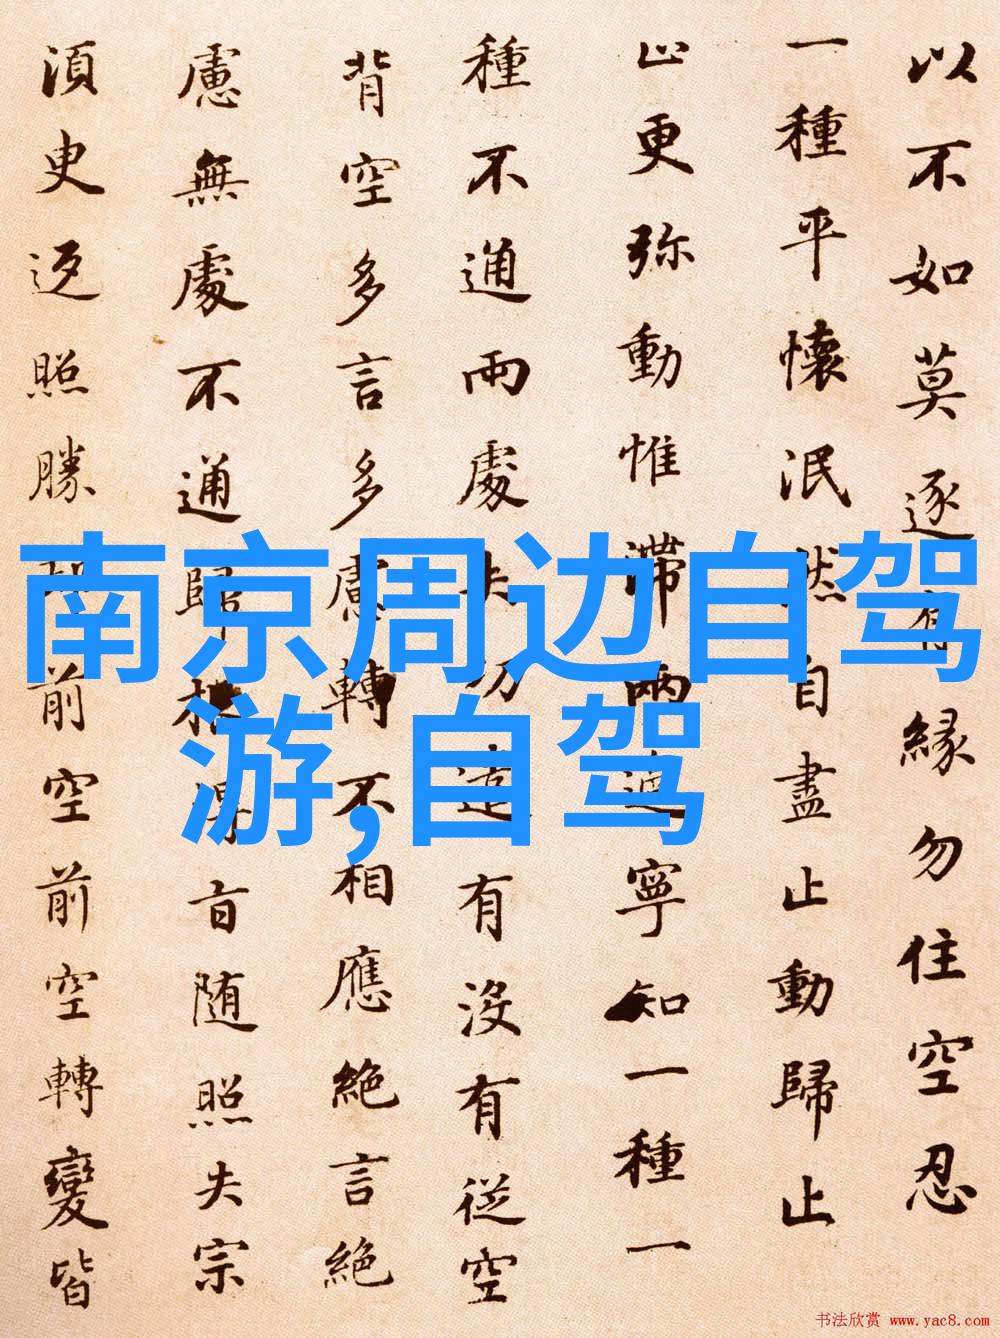 以不如莫逐有緣勿住空忍
一種平懷泯然自盡止動歸止
止更弥動惟滞兩邊寧知一種一
種不通兩處失功遣有没有從空
背空多言多慮轉不相應絶言絶
慮無處不通歸根旨随照失宗
須臾返照勝前空前空轉變皆
南京周边自驾
游,自驾
书法欣赏 www.yac8.com